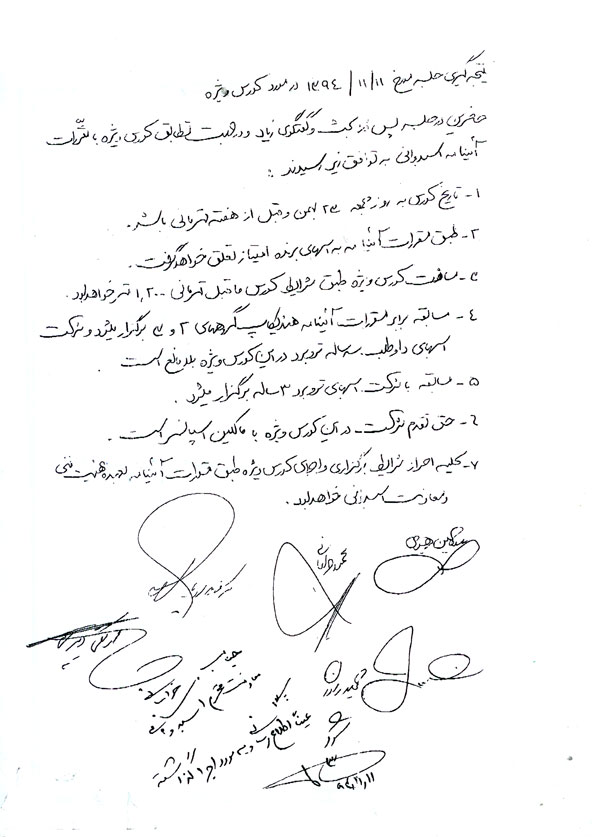 نتیجه گیری جلسه مورخ ۱۳۹۴/۱۱/۱۱ در مورد کورس ویژه
حاضرین در جلسه پس از بحث و گفتگوی زیاد و در جهت تطابق کورس ویژه با مقررات
آئیننامه اسبدوانی به توافق زیر رسیدند :
۱- تاریخ کورس به روز جمعه ۲۳ بهمن و قبل از هفته قهرمانی باشد.
۲- طبق مقررات آئیننامه به اسبهای برنده امتیاز تعلق خواهد گرفت.
۳- مسافت کورس ویژه طبق شرایط کورس ماقبل قهرمانی ۱,۲۰۰ متر خواهد بود.
۴- مسابقه برابر مقررات آئیننامه هندیکاپ گروههای ۲ و ۳ برگزار میشود و شرکت
اسبهای داوطلب سه ساله تروبرد در این کورس ویژه بلامانع است.
۵- مسابقه با شرکت اسبهای تروبرد ۳ ساله برگزار میشود.
۶- حق تقدم شرکت در این کورس ویژه با مالکین اسپانسر است.
۷- کلیه احراز شرایط برگزاری و اجرای کورس ویژه طبق مقررات آئیننامه بعهده هیئت فنی
و معاونت اسبدوانی خواهد بود.
جناب
معاونت محترم اسبدوانی
جهت اطلاع رسانی و به مورد اجرا گذاشته
شود
۹۴/۱۱/۱۱